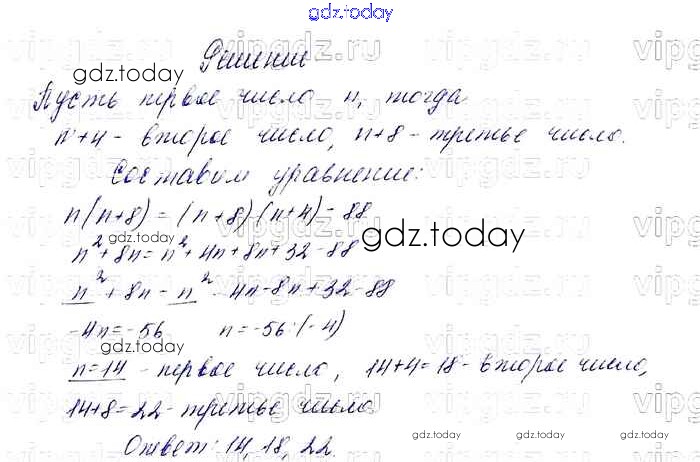 gdz.today
Решение
Пусть первое число n, тогда
n+4 - второе число, n+8 - третье число.
Составим уравнение:
n(n+8) = (n+8)(n+4) - 88
n²+8n = n²+4n+8n+32-88
n²+8n-n²-4n-8n+32-88
-4n=-56 n=-56:(-4)
n=14 - первое число, 14+4=18 - второе число,
14+8=22 - третье число.
Ответ: 14, 18, 22.
gdz.today
gdz.today
gdz.today
gdz.today
gdz.today
gdz.today
vipgdz.ru